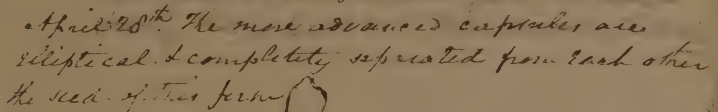 April 28th. The more advanced capsules are
elliptical & completely separated from each other
the seed of this form